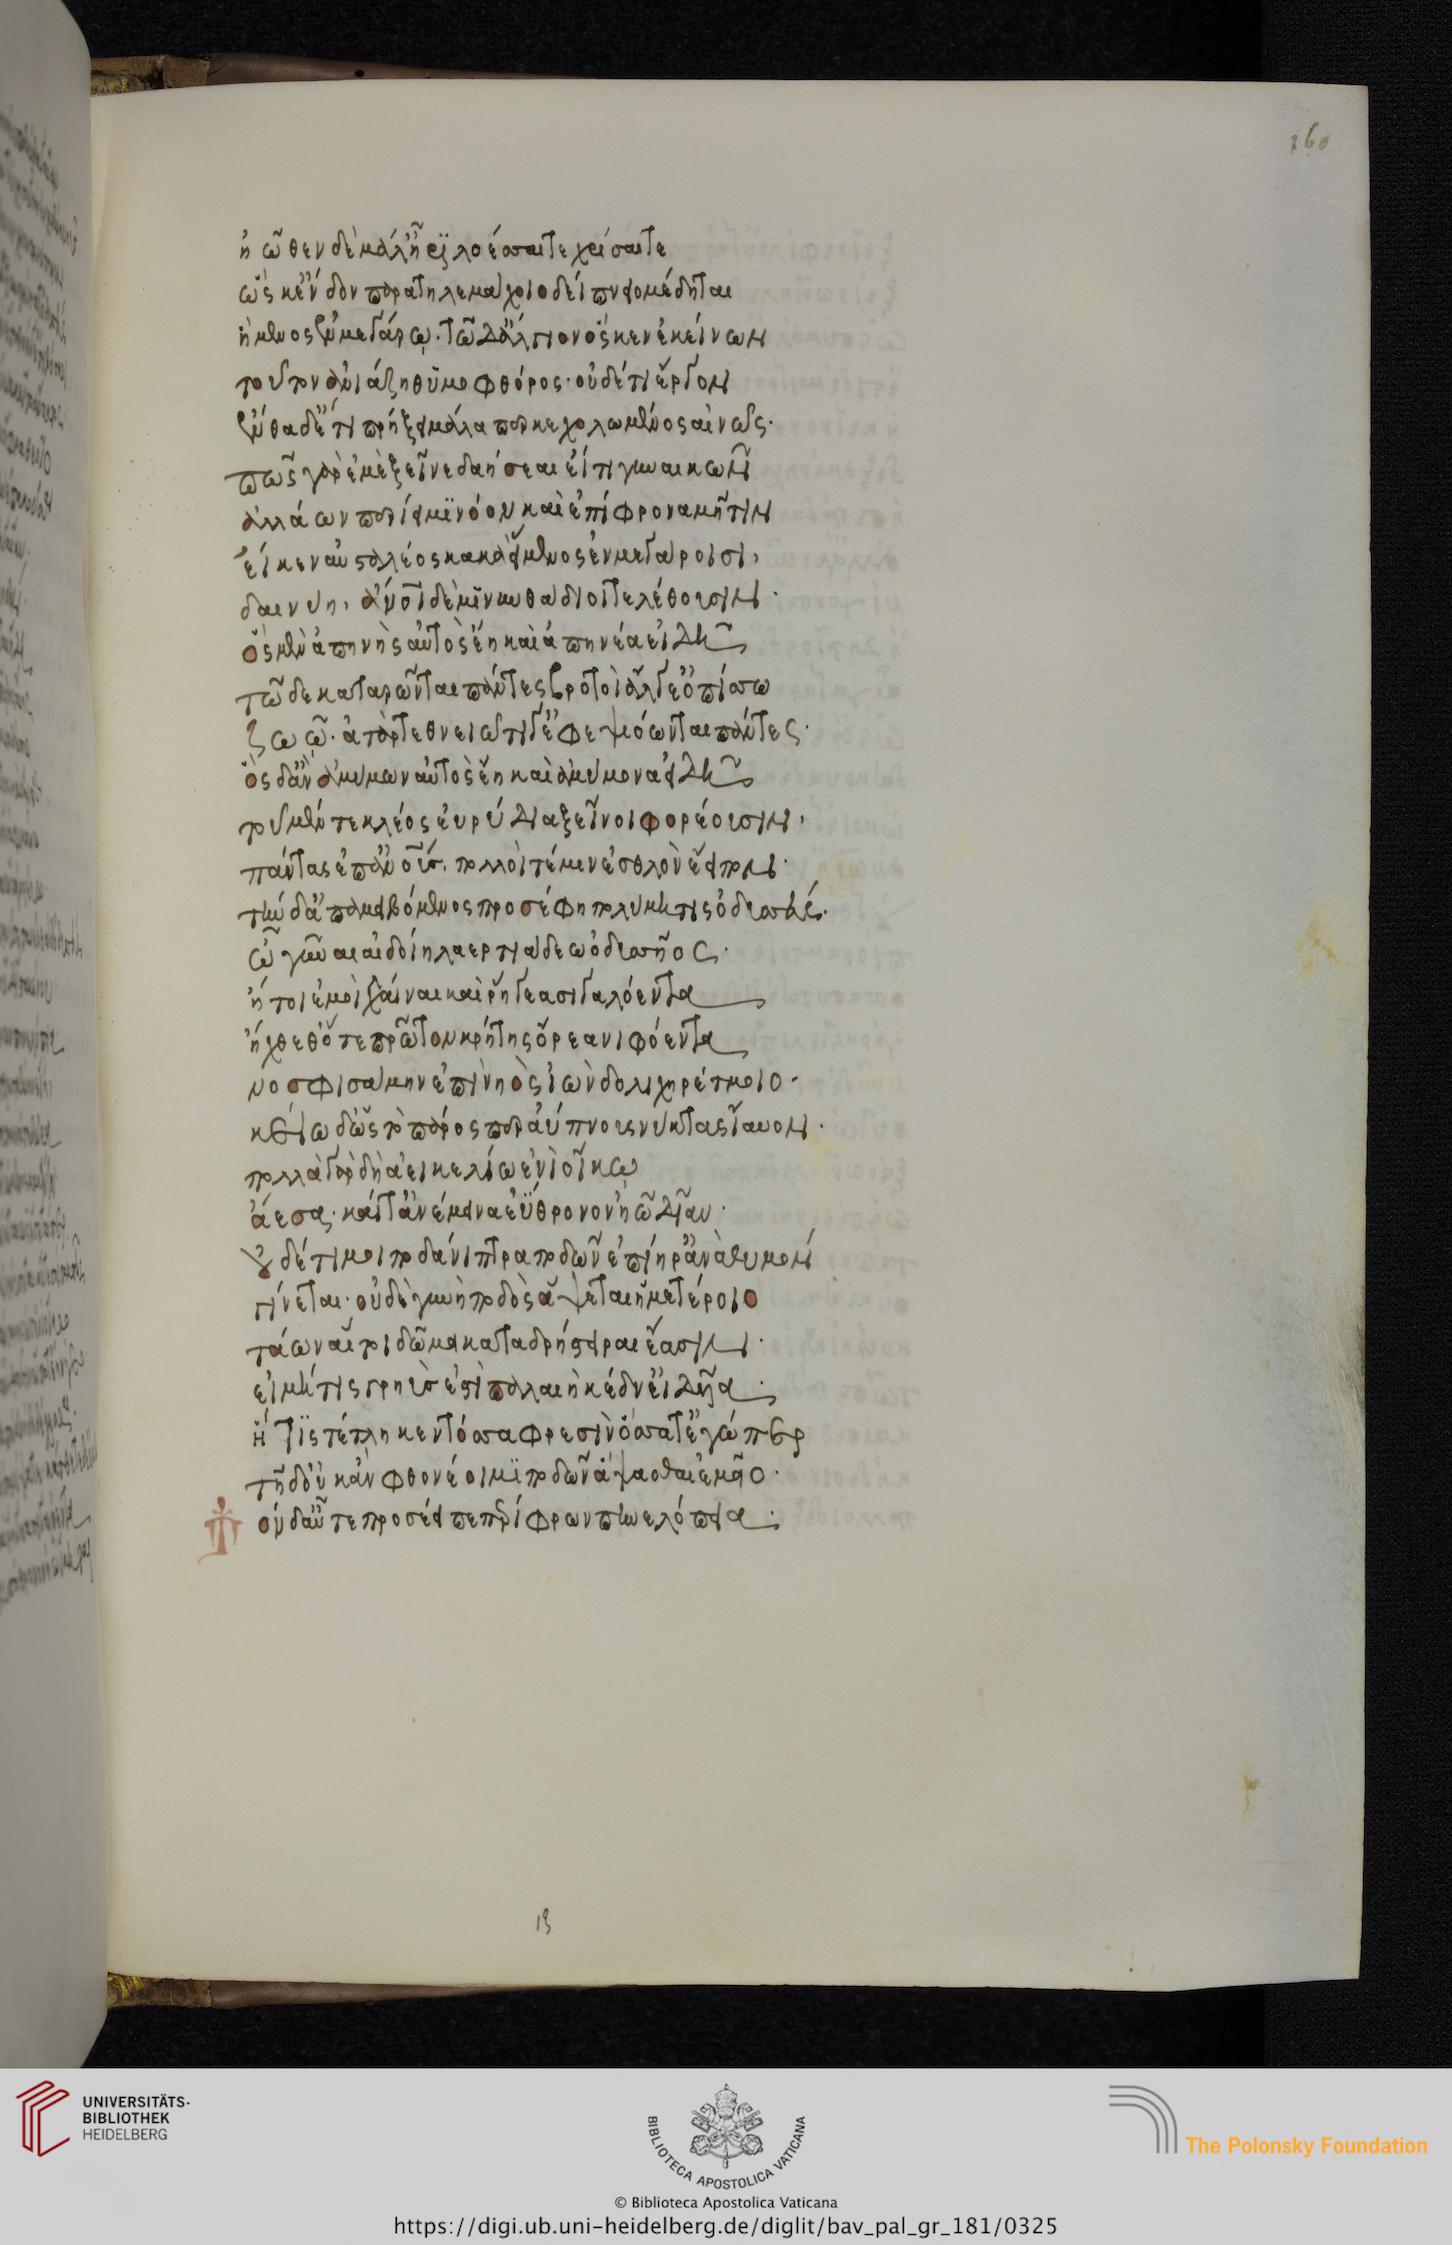 160
ἠῶθεν δὲ μάλ' ἦρι λοέσσατε χρίσατε
ὥς κ' ἔνδον παρὰ τηλεμάχοιο δείπνοιο μέδηται
ἥμενος ἐν μεγάρῳ· τῶ δ' ἄλγιον ὅς κεν ἐκείνων
τοῦτον ἀνιάζῃ θυμοφθόρος· οὐδέ τι ἔργον
ἐνθάδ' ἔτι πρήξει μάλα περ κεχολωμένος αἰνῶς·
πῶς γὰρ ἐμὲ ξεῖνε δαήσεαι εἴ τι γυναικῶν
ἀλλάων περίειμι νόον καὶ ἐπίφρονα μῆτιν
εἴ κεν ἀυσταλέος κακὰ εἱμένος ἐν μεγάροισι,
δαινύῃ, ἄνθρωποι δὲ μινυνθάδιοι τελέθουσιν·
ὃς μὲν ἀπηνὴς αὐτὸς ἔῃ καὶ ἀπηνέα εἰδῇ
τῶ δὲ καταρῶνται πάντες βροτοὶ ἄλγε' ὀπίσσω
ζωῷ· ἀτὰρ τεθνειῶτί γ' ἐφεψιόωνται πάντες·
ὃς δ' ἂν ἀμύμων αὐτὸς ἔῃ καὶ ἀμύμονα εἰδῇ
τοῦ μέν τε κλέος εὐρὺ διὰ ξεῖνοι φορέουσιν,
πάντας ἐπ' ἀνθρώπους. πολλοί τέ μιν ἐσθλὸν ἔειπον·
τὴν δ' ἀπαμειβόμενος προσέφη πολύμητις ὀδυσσεύς·
ὦ γύναι αἰδοίη λαερτιάδεω ὀδυσῆος·
ἤτοι ἐμοὶ χλαῖναι καὶ ῥήγεα σιγαλόεντα
ἤχθεθ' ὅτε πρῶτον κρήτης ὄρεα νιφόεντα
νοσφισάμην ἐπὶ νηὸς ἰὼν δολιχηρέτμοιο·
κείω δ' ὡς τὸ πάρος περ ἀύπνους νύκτας ἴαυον·
πολλὰς γὰρ δὴ ἀεικελίω ἐνὶ οἴκῳ
ἄεσα· καί τ' ἀνέμεινα ἐΰθρονον ἠῶ δῖαν·
οὐδέ τί μοι ποδάνιπτρα ποδῶν ἐπίηρ' ἀνὰ θυμὸν
γίνεται· οὐδὲ γυνὴ ποδὸς ἅψεται ἡμετέροιο
τάων αἵ τοι δῶμα κάτα δρήστειραι ἔασιν·
εἰ μή τις γρηῦς ἐστὶ παλαιὴ κέδν' εἰδυῖα·
ἥ τις τέτληκεν τόσσα φρεσὶν ὅσσα τ' ἐγώ περ
τῇ δ' οὐκ ἂν φθονέοιμι ποδῶν ἅψασθαι ἐμεῖο·
τὸν δ' αὖτε προσέειπε περίφρων πηνελόπεια·
19
UNIVERSITÄTS-
BIBLIOTHEK
HEIDELBERG
BIBLIOTECA APOSTOLICA VATICANA
© Biblioteca Apostolica Vaticana
The Polonsky Foundation
https://digi.ub.uni-heidelberg.de/diglit/bav_pal_gr_181/0325